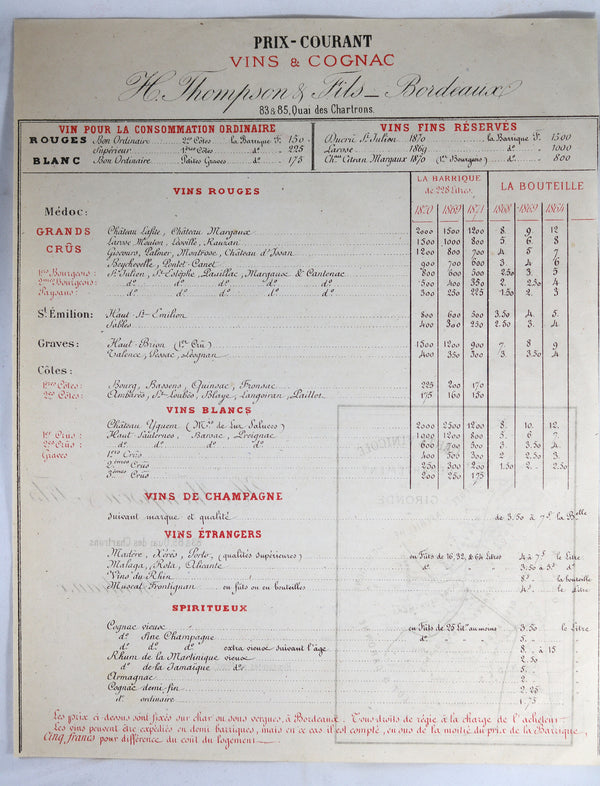 PRIX-COURANT
VINS & COGNAC
H. Thompson & Fils_ Bordeaux
83 & 85, Quai des Chartrons.
VIN POUR LA CONSOMMATION ORDINAIRE
ROUGES Bon Ordinaire 2es Côtes la Barrique F. 150
Supérieur 1ères Côtes do 225
BLANC Bon Ordinaire Petites Graves do 175
VINS FINS RÉSERVÉS
Ducru St Julien 1870 la Barrique F. 1500
Larose 1869 do 1000
Chau Citran Margaux 1870 (1er Bourgeois) do 800
VINS ROUGES
LA BARRIQUE de 228 Litres. LA BOUTEILLE
1870 1869 1871 1868 1869 1864
Médoc:
GRANDS Château Lafite, Château Margaux 2000 1500 1200 8. 9. 12
CRÛS Larose Mouton, Léoville, Rauzan 1500 1000 800 5. 6. 8
Giscours, Palmer, Montrose, Château d'Issan 1200 800 700 4. 5. 7.
Beychevelle, Pontet-Canet 900 700 600 3. 4. 6
1ers Bourgeois: St Julien, St Estèphe, Pauillac, Margaux & Cantenac 800 600 500 2.50 3. 5
2mes Bourgeois: do do do do 500 400 350 2. 2.50 4
Paysans: do do do do 300 250 225 1.50 2. 3
St. Émilion: Haut St-Emilion 800 600 500 3.50 4. 5.
Sables 400 300 250 2.50 3. 4.
Graves: Haut-Brion (1er Crû) 1500 1200 900 7. 8 9
Talence, Pessac, Léognan 400 350 300 3. 3.50 4
Côtes:
1res Côtes: Bourg, Bassens, Quinsac, Fronsac 225 200 170
2es Côtes: Ambarès, St-Loubès, Blaye, Langoiran, Paillet 175 160 150
VINS BLANCS
Château Yquem (Mis de Lur Saluces) 2000 2500 1200 8. 10. 12.
1ers Crûs: Haut-Sauternes, Barsac, Preignac 1000 1200 800 5. 6. 7
2es Crûs: do do do 600 700 500 3. 3.50 4.
Graves 1ers Crûs 400 500 300 2 2.50 3.
2èmes Crûs 250 300 200 1.50 2. 2.50
3es Crûs 200 250 175
VINS DE CHAMPAGNE
suivant marque et qualité de 3.50 à 7f. la Blle
VINS ÉTRANGERS
Madère, Xérès, Porto, (qualités supérieures) en Fûts de 16, 32, & 64 Litres 4 à 7f. le Litre
Malaga, Rota, Alicante do 3.50 à 5f. do
Vins du Rhin 8f. la bouteille
Muscat-Frontignan en fûts ou en bouteilles 4f. le Litre
SPIRITUEUX
Cognac vieux en Fûts de 25 Lit. au moins 3.50 le Litre
do Fine Champagne do 5.
do do do extra vieux suivant l'âge 8. à 15
Rhum de la Martinique vieux 2.50
do de la Jamaïque do 5.
Armagnac 2.
Cognac demi-fin 2.25
d. ordinaire 1.75
Les prix ci-dessus sont fixés sur char ou sous vergues, à Bordeaux. Tous droits de régie à la charge de l'acheteur.
Les vins peuvent être expédiés en demi barriques, mais en ce cas il est compté, en sus de la moitié du prix de la Barrique,
Cinq francs pour différence du coût du logement.